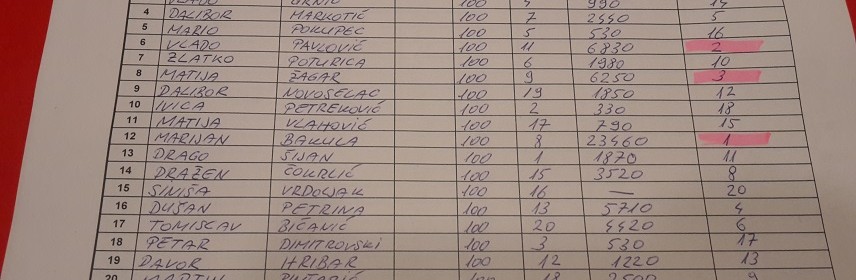 100 990 14
4 DALIBOR MARKOTIĆ 100 7 2440 5
5 MARIO POKUPEC 100 5 530 16
6 VLADO PAVLOVIĆ 100 11 6830 2
7 ZLATKO POTURICA 100 6 1980 10
8 MATIJA ŽAGAR 100 9 6250 3
9 DALIBOR NOVOSELAC 100 19 1850 12
10 IVICA PETREKOVIĆ 100 2 330 18
11 MATIJA VLAHOVIĆ 100 17 790 15
12 MARIJAN BAKULA 100 8 23460 1
13 DRAGO ŠIJAN 100 1 1870 11
14 DRAŽEN ČOURLIĆ 100 15 3520 8
15 SINIŠA VRDOLJAK 100 16 — 20
16 DUŠAN PETRINA 100 13 5710 4
17 TOMISLAV BIČANIĆ 100 20 4420 6
18 PETAR DIMITROVSKI 100 3 530 17
19 DAVOR HRIBAR 100 12 1220 13
20 MARTIN 100 18 2500 9